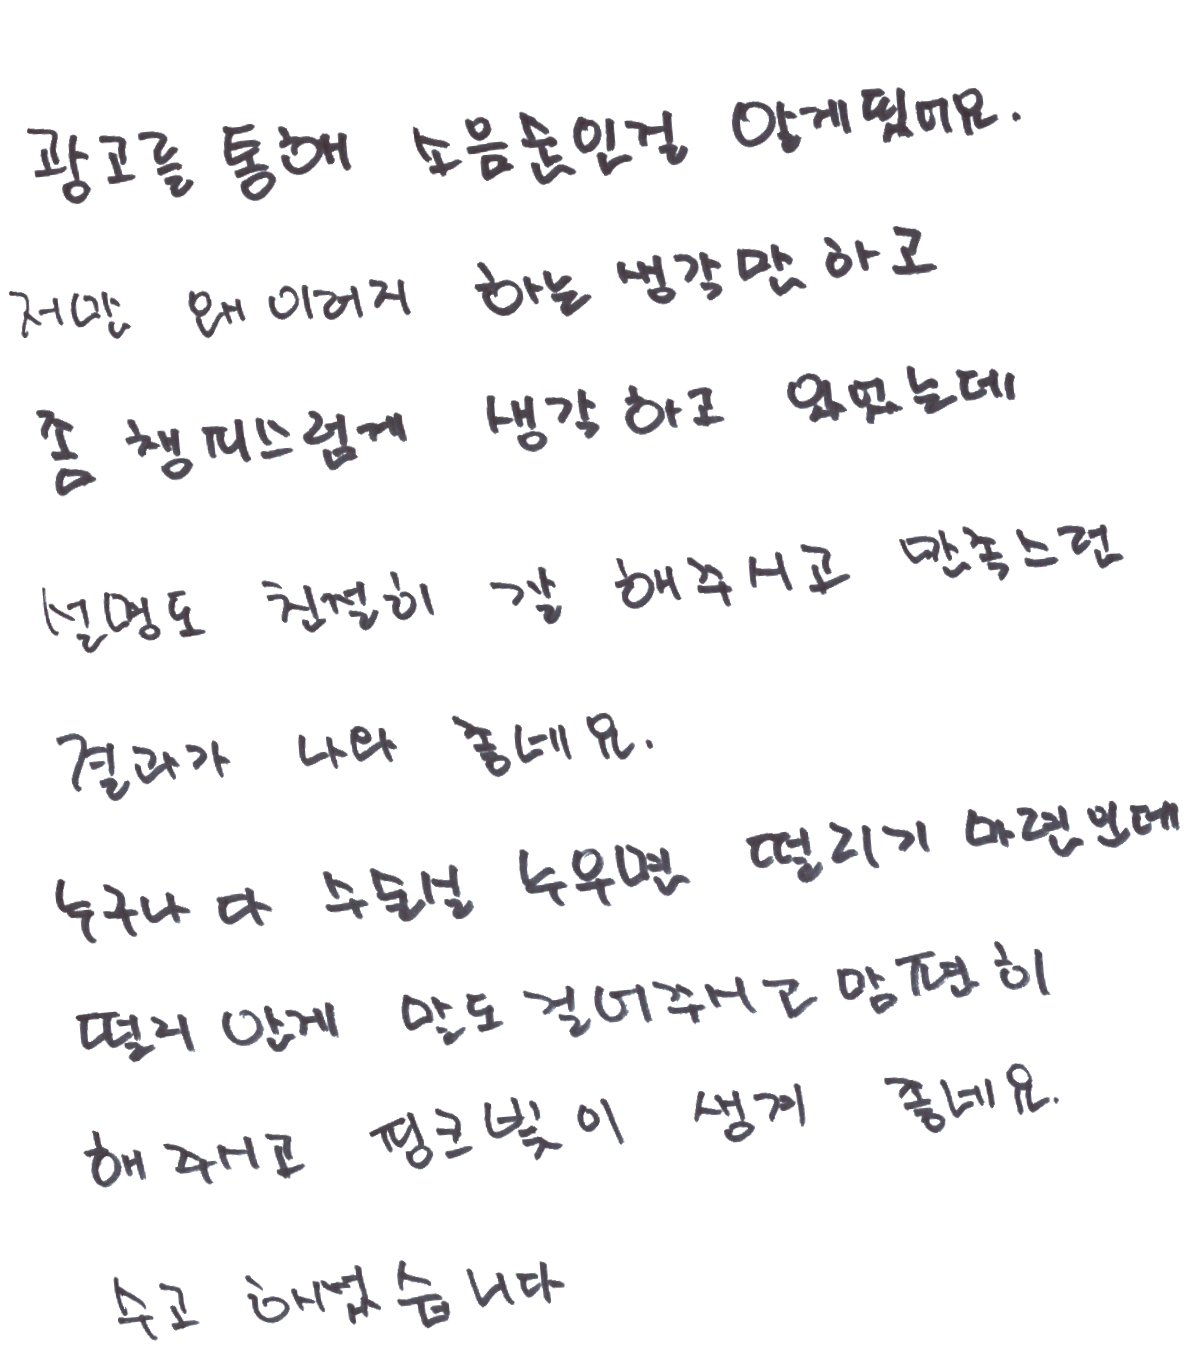 광고를 통해 소음순인걸 알게됬어요.
저만 왜 이러지 하는 생각만 하고
좀 챙피스럽게 생각하고 왔었는데
설명도 친절히 잘 해주시고 만족스런
결과가 나와 좋네요.
누구나 다 수술실 누우면 떨리기 마련인데
떨리 않게 말도 걸어주시고 맘편히
해주시고 핑크빛이 생겨 좋네요.
수고 하셨습니다